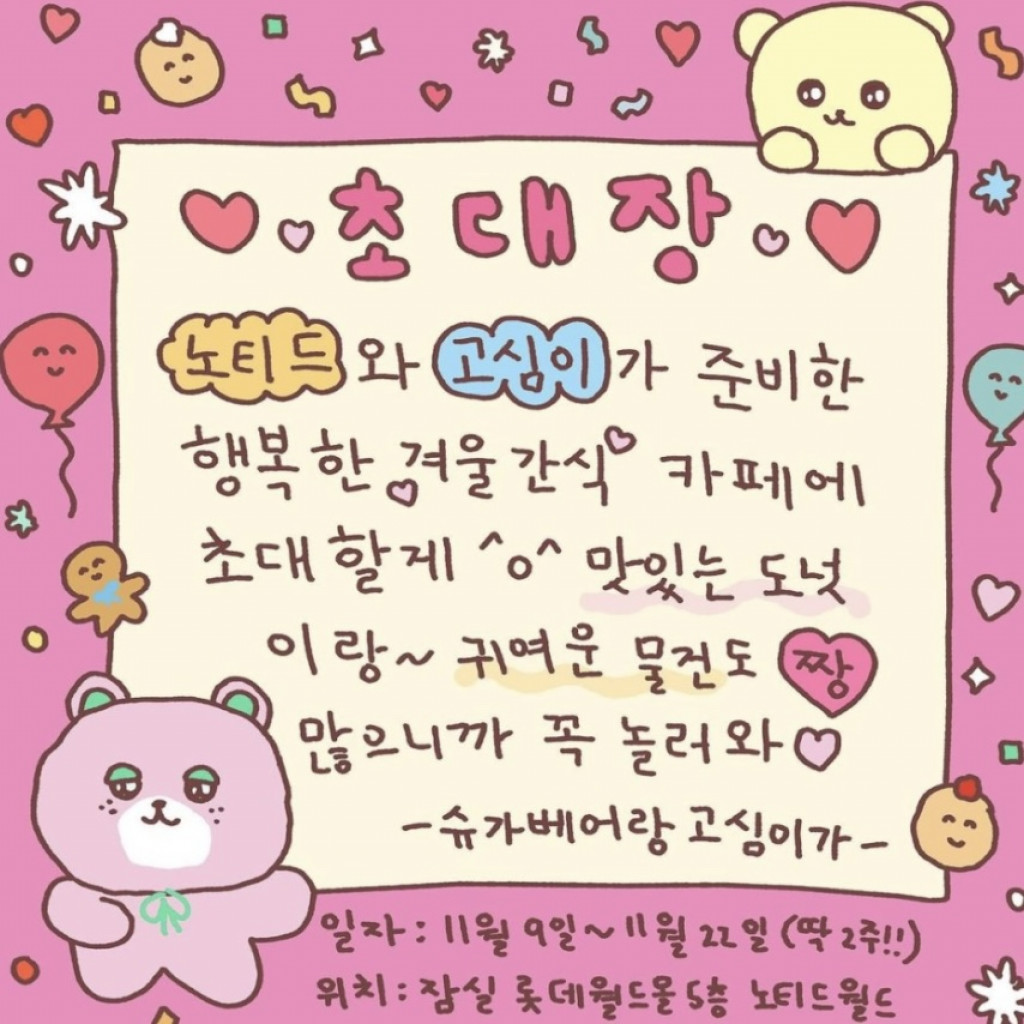 초대장
노티드와 고심이가 준비한
행복한 겨울간식 카페에
초대할게 ^o^ 맛있는 도넛
이랑~ 귀여운 물건도 짱
많으니까 꼭 놀러와
-슈가베어랑 고심이가-
일자 : 11월 9일~11월 22일 (딱 2주!!)
위치 : 잠실 롯데월드몰 5층 노티드월드